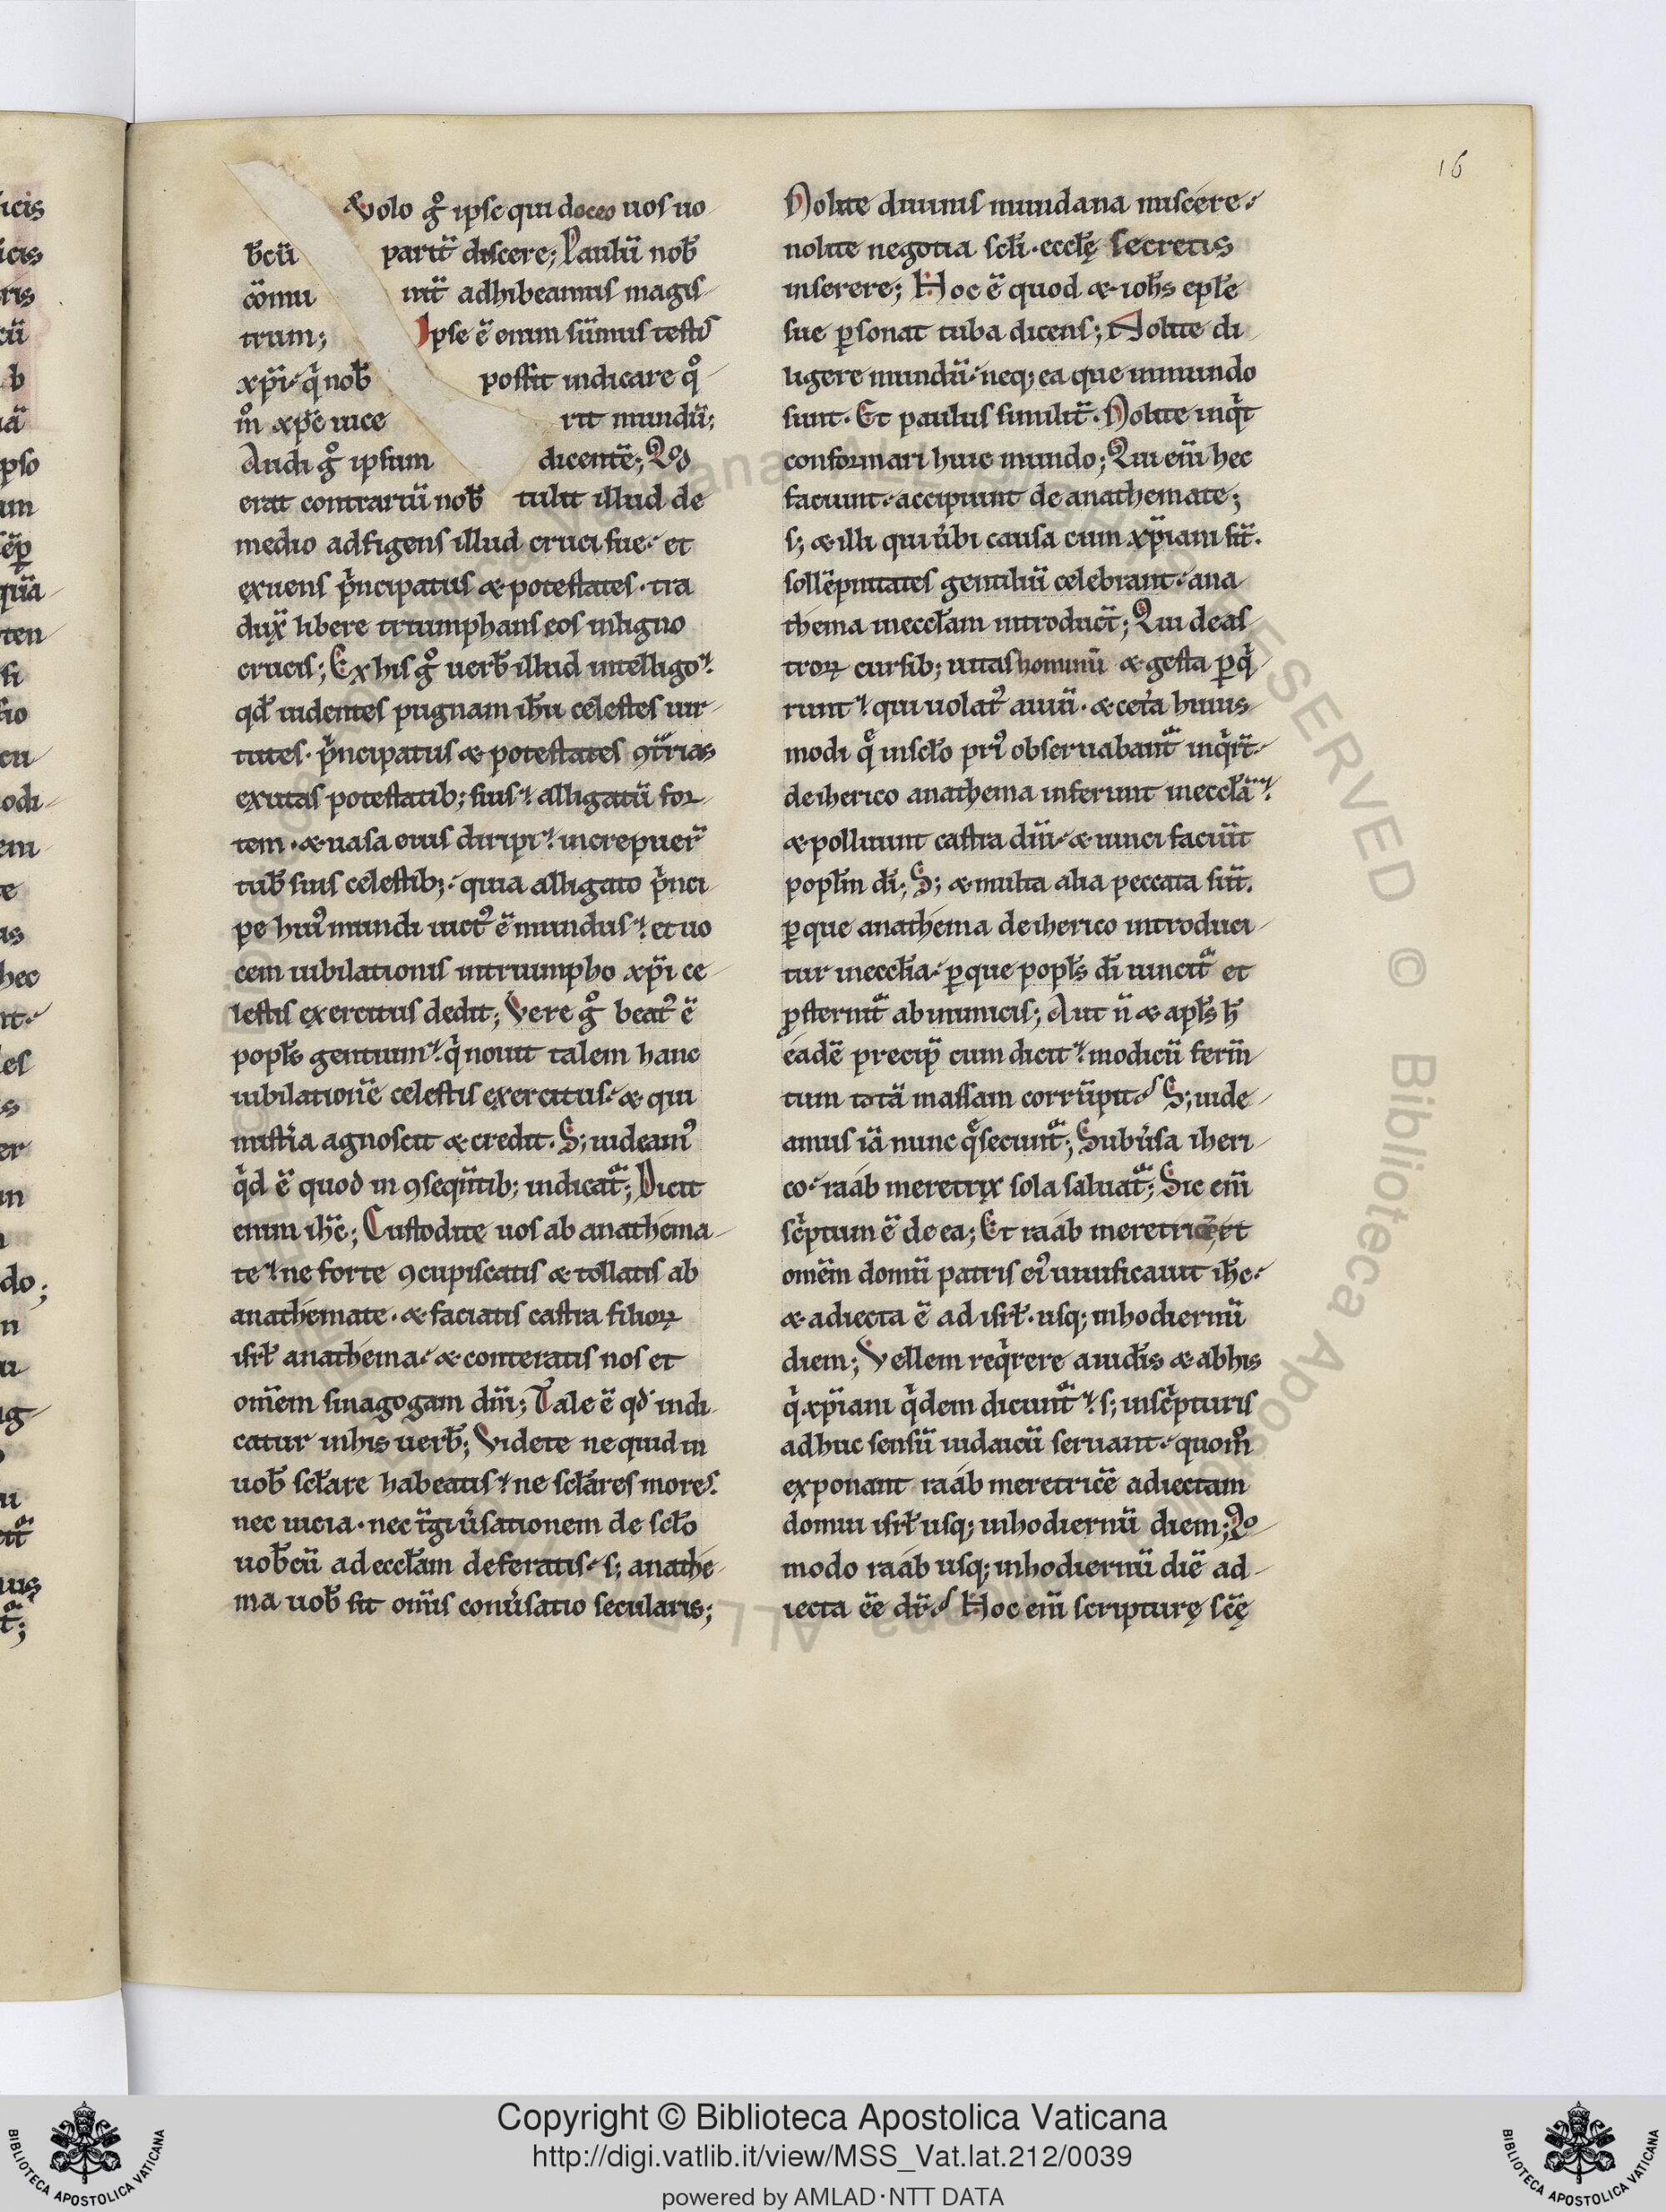 16
& volo gͦ ipse qui doceo uos uo
b̄cū parit̄ discere; Paulū nob̄
cōmu nit̄ adhibeamus magis
trum; Ipse ē enim sūmus testis
xp̄i· qͥ nob̄ possit indicare qͦ
mͦ xp̄c uice rit mundū;
Audi gͦ ipsum dicentē; Qd
erat contrariū nob̄ tulit illud de
medio adfigens illud cruci sue· et
exuens pͥncipatus & potestates· tra
dux̄ libere triumphans eos inligno
crucis; Ex his gͦ uerb̄ illud intelligo·
qd̄ uidentes pugnam ih̄u celestes uir
tutes· pͥncipatus & potestates ꝯt̄rias
exutas potestatib; suis· alligatū for
tem· & uasa eius diripi· increpuer̄
tub̄ suis celestib;· quia alligato pͥnci
pe huiꝰ mundi uictꝰ ē mundus· et uo
cem iubilationis intriumpho xp̄i ce
lestis exercitus dedit; Vere gͦ beatꝰ ē
popl̄s gentium· qͥ nouit talem hanc
iubilationē celestis exercitus· & qui
mistͥia agnoscit & credit· S; uideamꝰ
qͥd ē quod in ꝯseqūtib; indicat᷑; Dicit
enim ih̄c; Custodite uos ab anathema
te· ne forte ꝯcupiscatis & tollatis ab
anathemate· & faciatis castra filioꝝ
isrl̄ anathema· & conteratis nos et
om̄em sinagogam dn̄i; Tale ē qd̄ indi
catur inhis uerb̄; Videte ne quid in
uob̄ scl̄are habeatis· ne scl̄ares mores·
nec uicia· nec t̄giu̓sationem de scl̄o
uob̄cū ad eccl̄am deferatis· s; anathe
ma uob̄ sit om̄is conu̓satio secularis;
Nolite diuinis mundana miscere·
nolite negotia scl̄i· eccl̄ę secretis
inserere; Hoc ē quod & ioh̄s epl̄e
sue ꝑsonat tuba dicens; Nolite di
ligere mundū· neq; ea que inmundo
sunt· Et paulus similit̄· Nolite inqͥt
conformari huic mundo; Qui eni̅ hec
faciunt· accipiunt de anathemate;
s; & illi qui u̓bi causa cum xp̄iani sīt·
sollēpnitates gentiliū celebrant· ana
thema ineccl̄am introduct̄; Qui de as
troꝝ cursib; uitas hominū & gesta ꝑqͥ
runt· qui uolatꝰ auiū· & cet̓a huius
modi qͤ inscl̄o priꝰ obseruabant᷑ inqͥrt̄·
deiherico anathema inferunt ineccl̄ā·
& polluunt castra dn̄i· & uinci faciūt
popl̄m di̅; S; & multa alia peccata sūt·
ꝑque anathema deiherico introduci
tur ineccl̄ia· ꝑque popl̄s di̅ uincit᷑ et
ꝓsternit᷑ ab inimicis; Aut n̄ & apl̄s h̄
eadē precip̄ cum dicit· modicū ferm̄
tum totā massam corrūpit S; uide
amus iā nunc qͤ secunt᷑; Subu̓sa iheri
co· raab meretrix sola saluat᷑; Sic eni̅
scͥptum ē de ea; Et raab meretricē, et
omēm domū patris eiꝰ uiuificauit ih̄c·
& adiecta ē ad isrl̄· usq; inhodiernū
diem; Vellem reqͥrere a iudeis & ab his
qͥ xp̄iani qͥdem dicunt᷑· s; inscͥpturis
adhuc sensū iudaicū seruant· quomͦ
exponant raab meretricē adiectam
domui isrl̄ usq; inhodiernū diem; Qo
modo raab usq; inhodiernū diē ad
iecta ēe dr̄ Hoc eni̅ scripturę sc̄ę
Copyright © Biblioteca Apostolica Vaticana
http://digi.vatlib.it/view/MSS_Vat.lat.212/0039
powered by AMLAD·NTT DATA
BIBLIOTECA APOSTOLICA VATICANA
BIBLIOTECA APOSTOLICA VATICANA